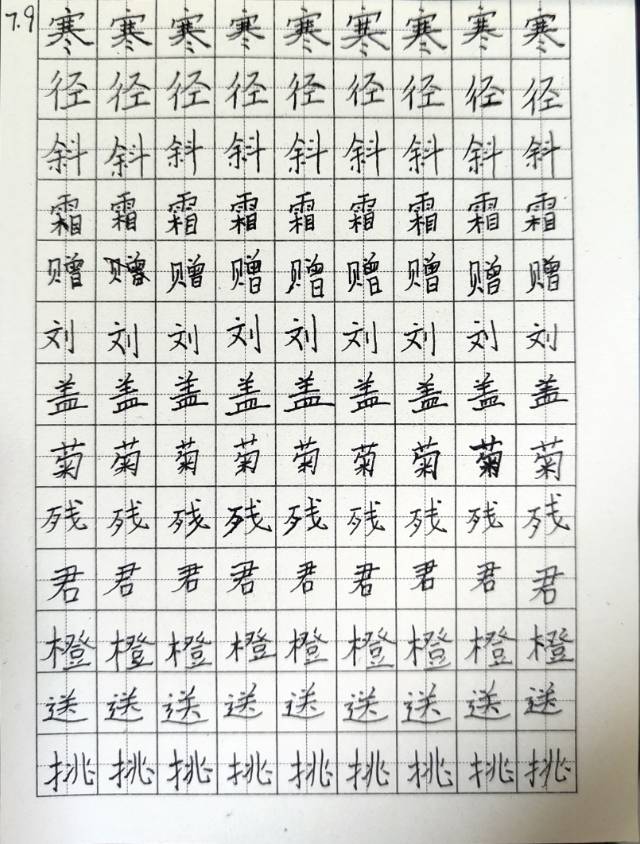 7.9
寒寒寒寒寒寒寒寒寒
径径径径径径径径径
斜斜斜斜斜斜斜斜斜
霜霜霜霜霜霜霜霜霜
赠赠赠赠赠赠赠赠赠
刘刘刘刘刘刘刘刘刘
盖盖盖盖盖盖盖盖盖
菊菊菊菊菊菊菊菊菊
残残残残残残残残残
君君君君君君君君君
橙橙橙橙橙橙橙橙橙
送送送送送送送送送
挑挑挑挑挑挑挑挑挑